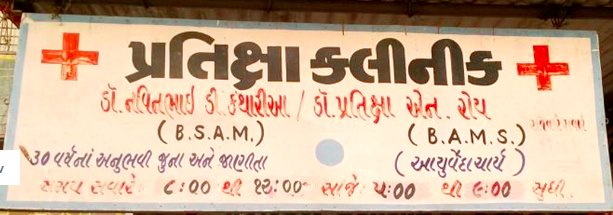 પ્રતિક્ષા ક્લીનીક
ડૉ. નવિનભાઇ ડી. કંથારીઆ / ડૉ. પ્રતિક્ષા એન. રોય
(B.S.A.M.) (B.A.M.S.)
30 વર્ષનાં અનુભવી જુના અને જાણીતા (આયુર્વેદાચાર્ય)
સમય સવારે: ૮:૦૦ થી ૧૨:૦૦ સાંજે ૫:૦૦ થી ૯:૦૦ સુધી